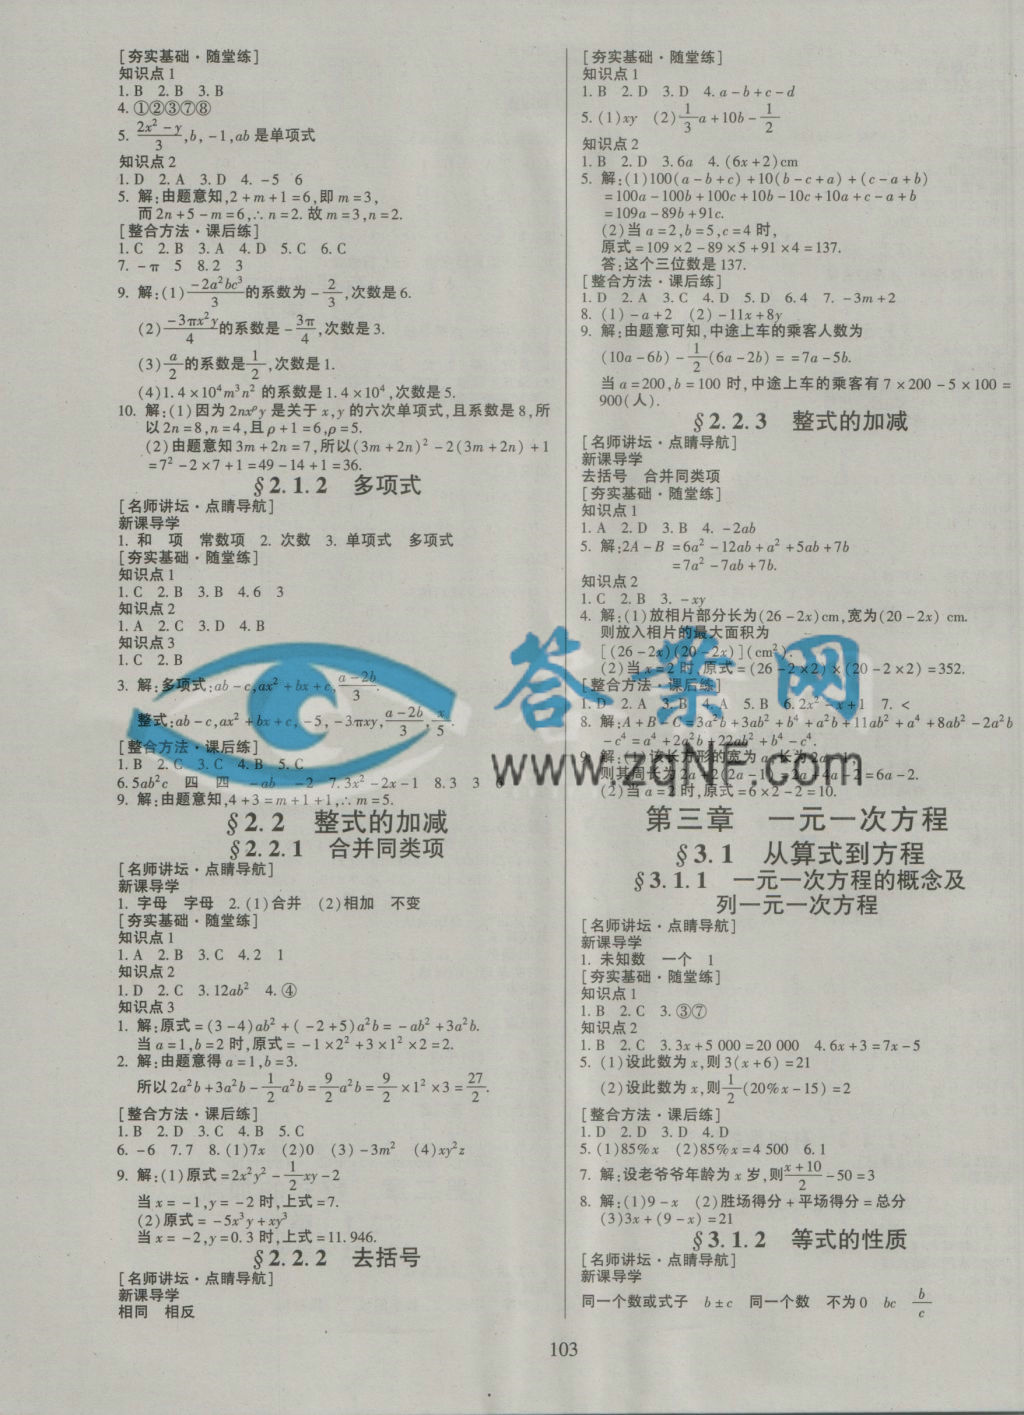 [夯实基础·随堂练]
知识点1
1. B 2. B 3. B
4. ①②③⑦⑧
5. (2x²-y)/3, b, -1, ab 是单项式
知识点2
1. D 2. A 3. D 4. -5 6
5. 解:由题意知,2+m+1=6,即m=3,
而2n+5-m=6,∴n=2.故m=3,n=2.
[整合方法·课后练]
1. C 2. B 3. A 4. D 5. C 6. C
7. -π 5 8. 2 3
9. 解:(1)(-2a²bc³)/3的系数为-2/3,次数是6.
(2)(-3πx²y)/4的系数是-3π/4,次数是3.
(3)a/2的系数是1/2,次数是1.
(4)1.4×10⁴m³n²的系数是1.4×10⁴,次数是5.
10. 解:(1)因为2nxᵖy是关于x,y的六次单项式,且系数是8,所
以2n=8,n=4,且ρ+1=6,ρ=5.
(2)由题意知3m+2n=7,所以(3m+2n)²-2(3m+2n)+1
=7²-2×7+1=49-14+1=36.
§2.1.2 多项式
[名师讲坛·点睛导航]
新课导学
1. 和 项 常数项 2. 次数 3. 单项式 多项式
[夯实基础·随堂练]
知识点1
1. C 2. B 3. B 4. 6 3
知识点2
1. A 2. C 3. D 4. B
知识点3
1. C 2. B
3. 解:多项式:ab-c,ax²+bx+c,(a-2b)/3.
整式:ab-c,ax²+bx+c,-5,-3πxy,(a-2b)/3,x/5.
[整合方法·课后练]
1. B 2. C 3. C 4. B 5. C
6. 5ab²c 四 四 -ab -2 7. 3x²-2x-1 8. 3 3 6
9. 解:由题意知,4+3=m+1+1,∴m=5.
§2.2 整式的加减
§2.2.1 合并同类项
[名师讲坛·点睛导航]
新课导学
1. 字母 字母 2. (1)合并 (2)相加 不变
[夯实基础·随堂练]
知识点1
1. A 2. B 3. C 4. 2 1
知识点2
1. D 2. C 3. 12ab² 4. ④
知识点3
1. 解:原式=(3-4)ab²+(-2+5)a²b=-ab²+3a²b.
当a=1,b=2时,原式=-1×2²+3×1²×2=2.
2. 解:由题意得a=1,b=3.
所以2a²b+3a²b-1/2a²b=9/2a²b=9/2×1²×3=27/2.
[整合方法·课后练]
1. B 2. D 3. C 4. B 5. C
6. -6 7. 7 8. (1)7x (2)0 (3)-3m² (4)xy²z
9. 解:(1)原式=2x²y²-1/2xy-2
当x=-1,y=-2时,上式=7.
(2)原式=-5x³y+xy³
当x=-2,y=0.3时,上式=11.946.
§2.2.2 去括号
[名师讲坛·点睛导航]
新课导学
相同 相反
[夯实基础·随堂练]
知识点1
1. B 2. D 3. D 4. a-b+c-d
5. (1)xy (2)1/3a+10b-1/2
知识点2
1. B 2. D 3. 6a 4. (6x+2)cm
5. 解:(1)100(a-b+c)+10(b-c+a)+(c-a+b)
=100a-100b+100c+10b-10c+10a+c-a+b
=109a-89b+91c.
(2)当a=2,b=5,c=4时,
原式=109×2-89×5+91×4=137.
答:这个三位数是137.
[整合方法·课后练]
1. D 2. A 3. C 4. D 5. D 6. 4 7. -3m+2
8. (1)-a+2 (2)-11x+8y
9. 解:由题意可知,中途上车的乘客人数为
(10a-6b)-1/2(6a-2b)==7a-5b.
当a=200,b=100时,中途上车的乘客有7×200-5×100=
900(人).
§2.2.3 整式的加减
[名师讲坛·点睛导航]
新课导学
去括号 合并同类项
[夯实基础·随堂练]
知识点1
1. A 2. D 3. B 4. -2ab
5. 解:2A-B=6a²-12ab+a²+5ab+7b
=7a²-7ab+7b.
知识点2
1. C 2. B 3. -xy
4. 解:(1)放相片部分长为(26-2x)cm,宽为(20-2x)cm.
则放入相片的最大面积为
[(26-2x)(20-2x)](cm²).
(2)当x=2时,原式=(26-2×2)×(20-2×2)=352.
[整合方法·课后练]
1. D 2. A 3. A 4. B 5. B 6. 2x²-x+1 7. <
8. 解:A+B-C=3a²b+3ab²+b⁴+a²b+11ab²+a⁴+8ab²-2a²b
-c⁴=a⁴+2a²b+22ab²+b⁴-c⁴.
9. 解:(1)该长方形的宽为a,长为2a-1,
则其周长为2a+2(2a-1)=2a+4a-2=6a-2.
(2)当a=2时,原式=6×2-2=10.
第三章 一元一次方程
§3.1 从算式到方程
§3.1.1 一元一次方程的概念及
列一元一次方程
[名师讲坛·点睛导航]
新课导学
1. 未知数 一个 1
[夯实基础·随堂练]
知识点1
1. B 2. C 3. ③⑦
知识点2
1. B 2. C 3. 3x+5 000=20 000 4. 6x+3=7x-5
5. (1)设此数为x,则3(x+6)=21
(2)设此数为x,则1/2(20%x-15)=2
[整合方法·课后练]
1. D 2. D 3. D 4. D
5. (1)85%x (2)85%x=4 500 6. 1
7. 解:设老爷爷年龄为x岁,则(x+10)/2-50=3
8. 解:(1)9-x (2)胜场得分+平场得分=总分
(3)3x+(9-x)=21
§3.1.2 等式的性质
[名师讲坛·点睛导航]
新课导学
同一个数或式子 b±c 同一个数 不为0 bc b/c
103
答案网
www.zqNF.com